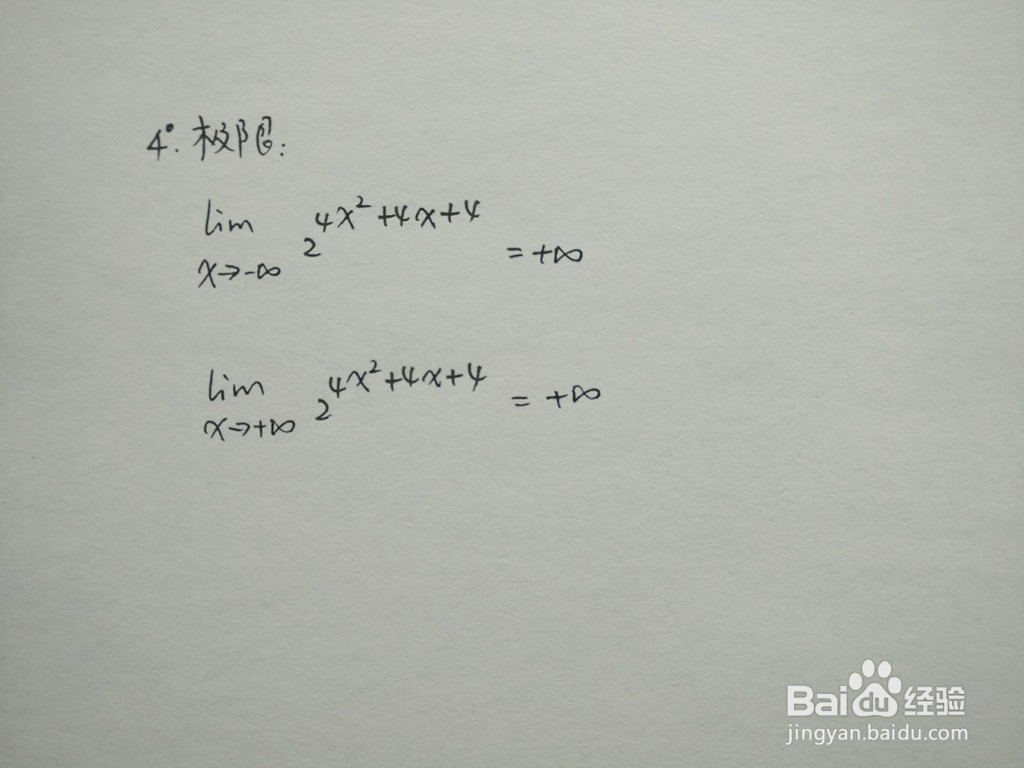 4°. 极限:
lim 2^{4x²+4x+4} = +∞
x→-∞
lim 2^{4x²+4x+4} = +∞
x→+∞
Baidu 经验
jingyan.baidu.com